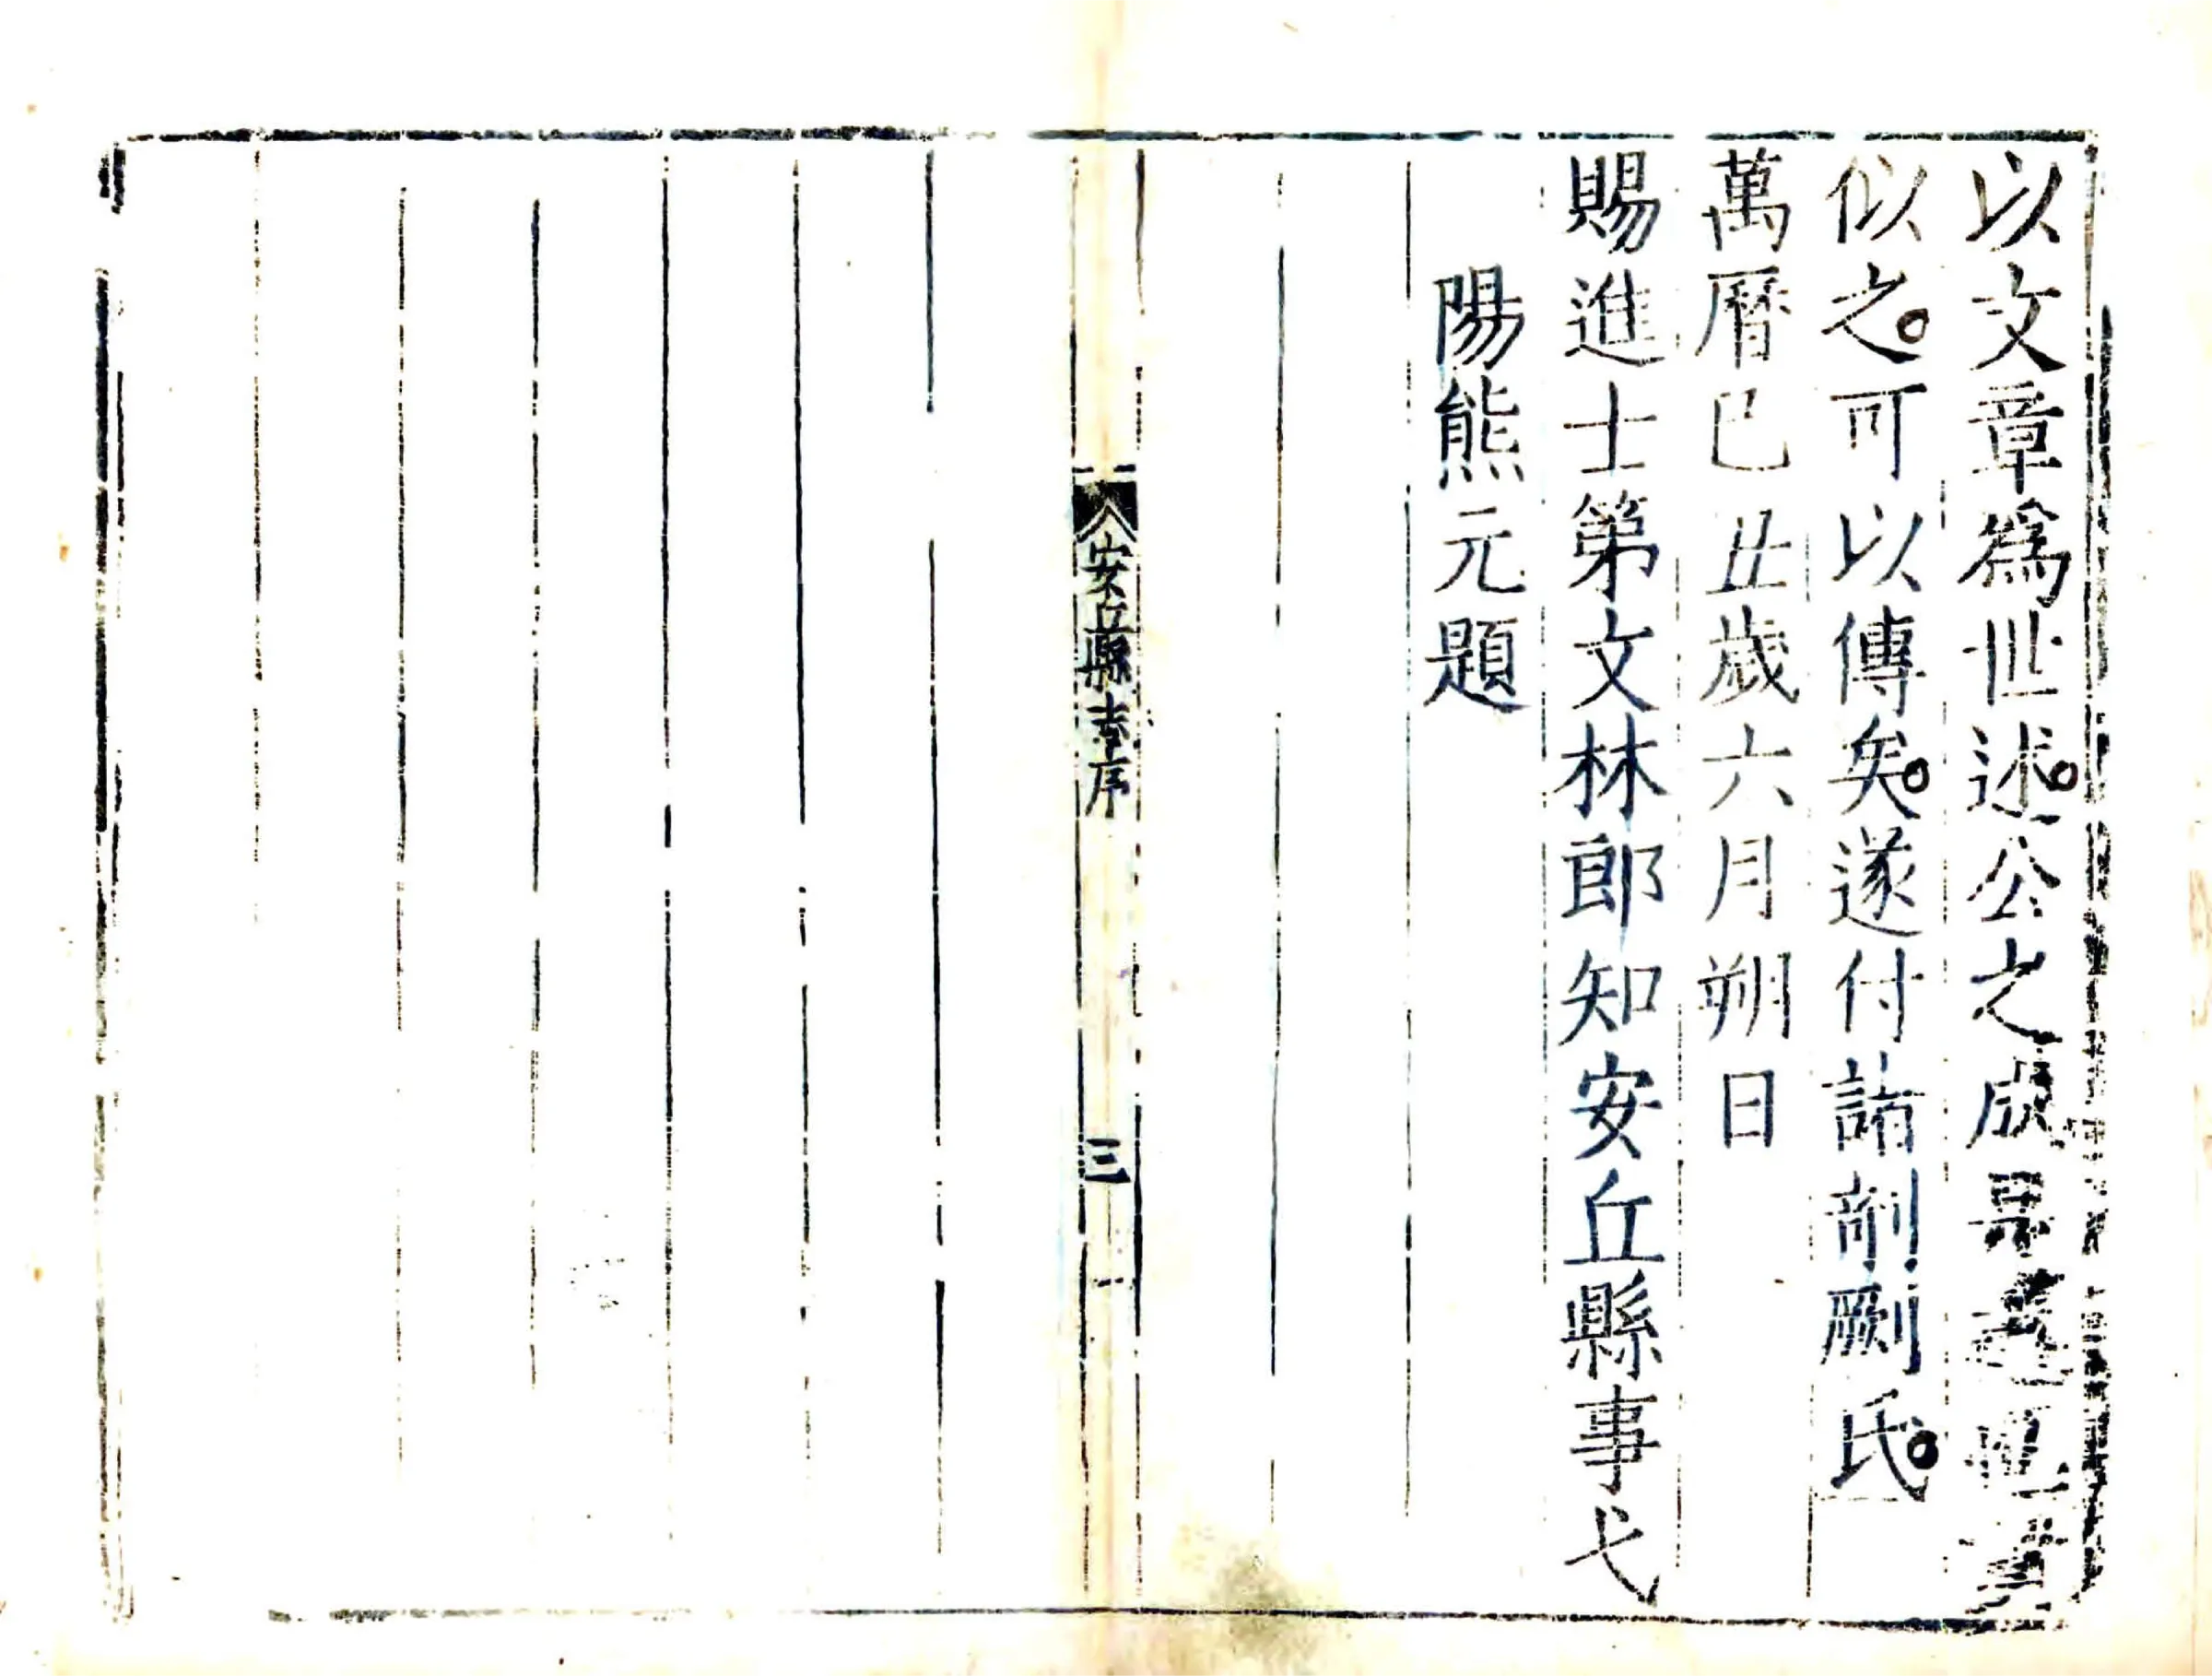 以文章爲世述。公之成
似之。可以傳矣。遂付諸剞劂氏。
萬曆巳丑歲六月朔日
賜進士第文林郎知安丘縣事弋
陽熊元題
安丘縣志序
三